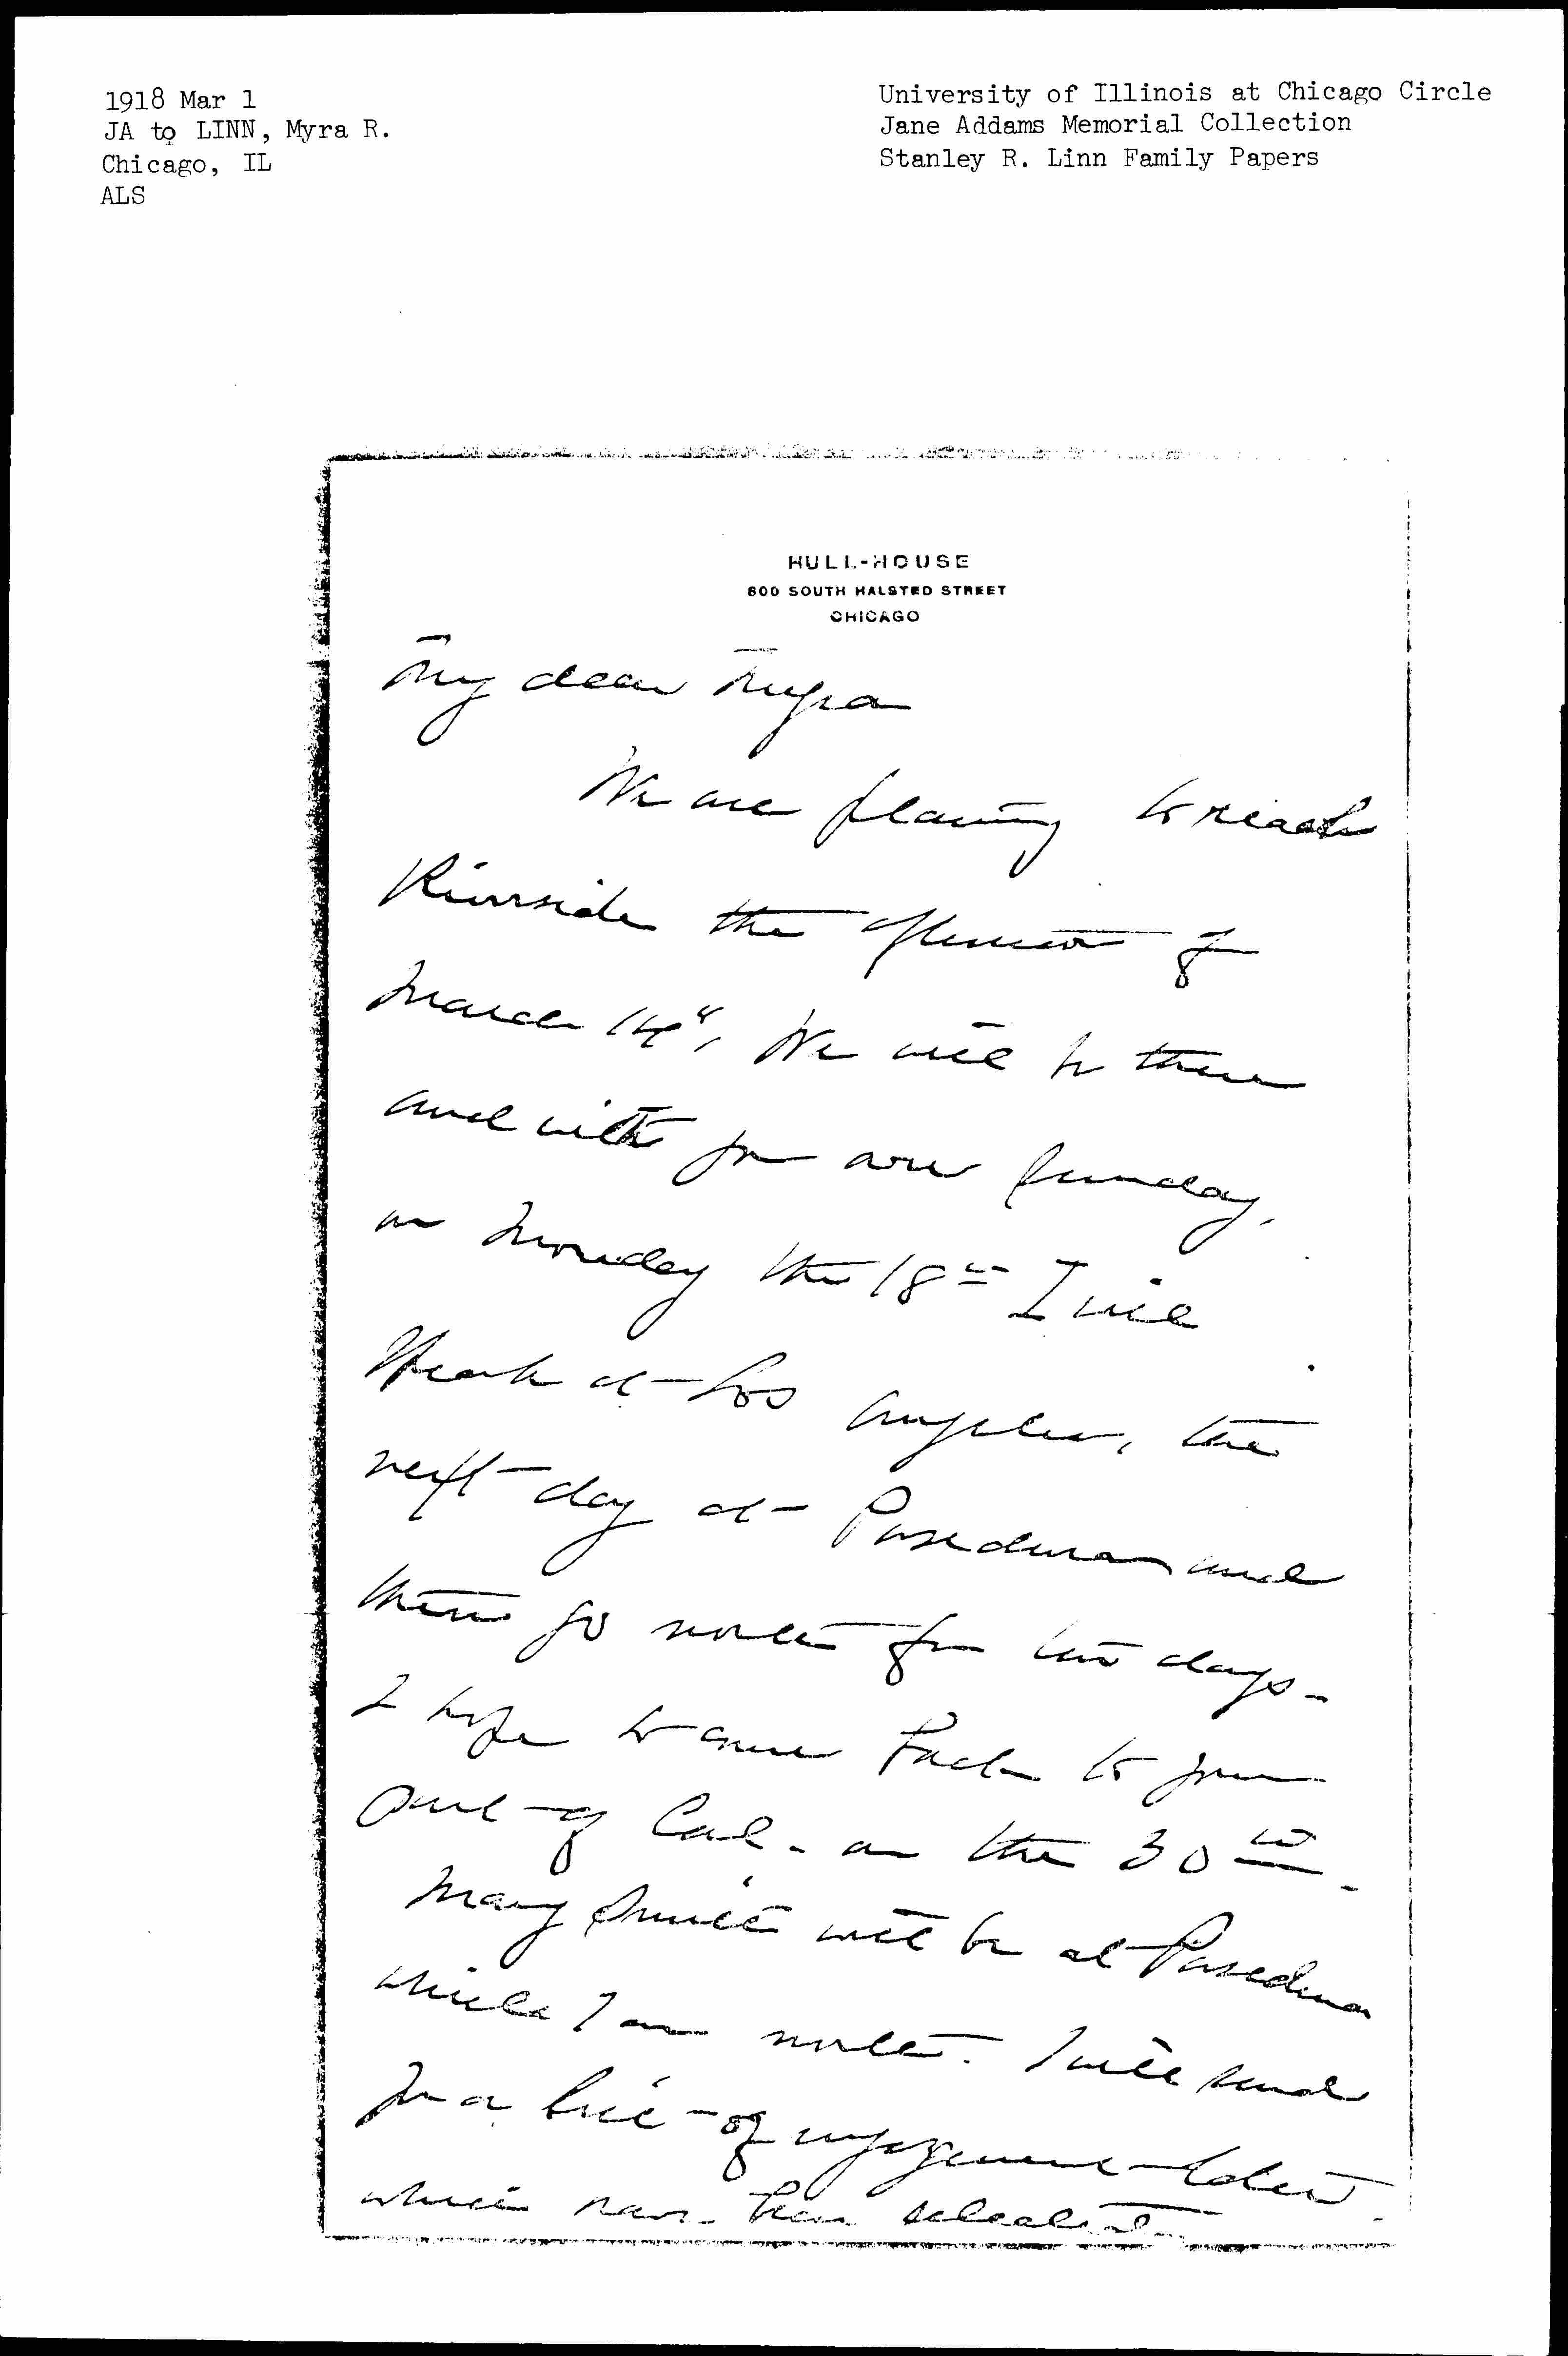 1918 Mar 1
JA to LINN, Myra R.
Chicago, IL
ALS
University of Illinois at Chicago Circle
Jane Addams Memorial Collection
Stanley R. Linn Family Papers
HULL-HOUSE
800 SOUTH HALSTED STREET
CHICAGO
My dear Myra
We are planing to reach
Riverside the afternoon of
March 14", We will be there
and with you over Sunday,
on Monday the 18th I will
speak at Los Angeles, the
next day at Pasadena and
then go north for two days -
I hope to come back to your
part of Cal. on the 30th.
Mary Smith will be at Pasadena
while I am north. I will send
you a list of engagement dates
which have been